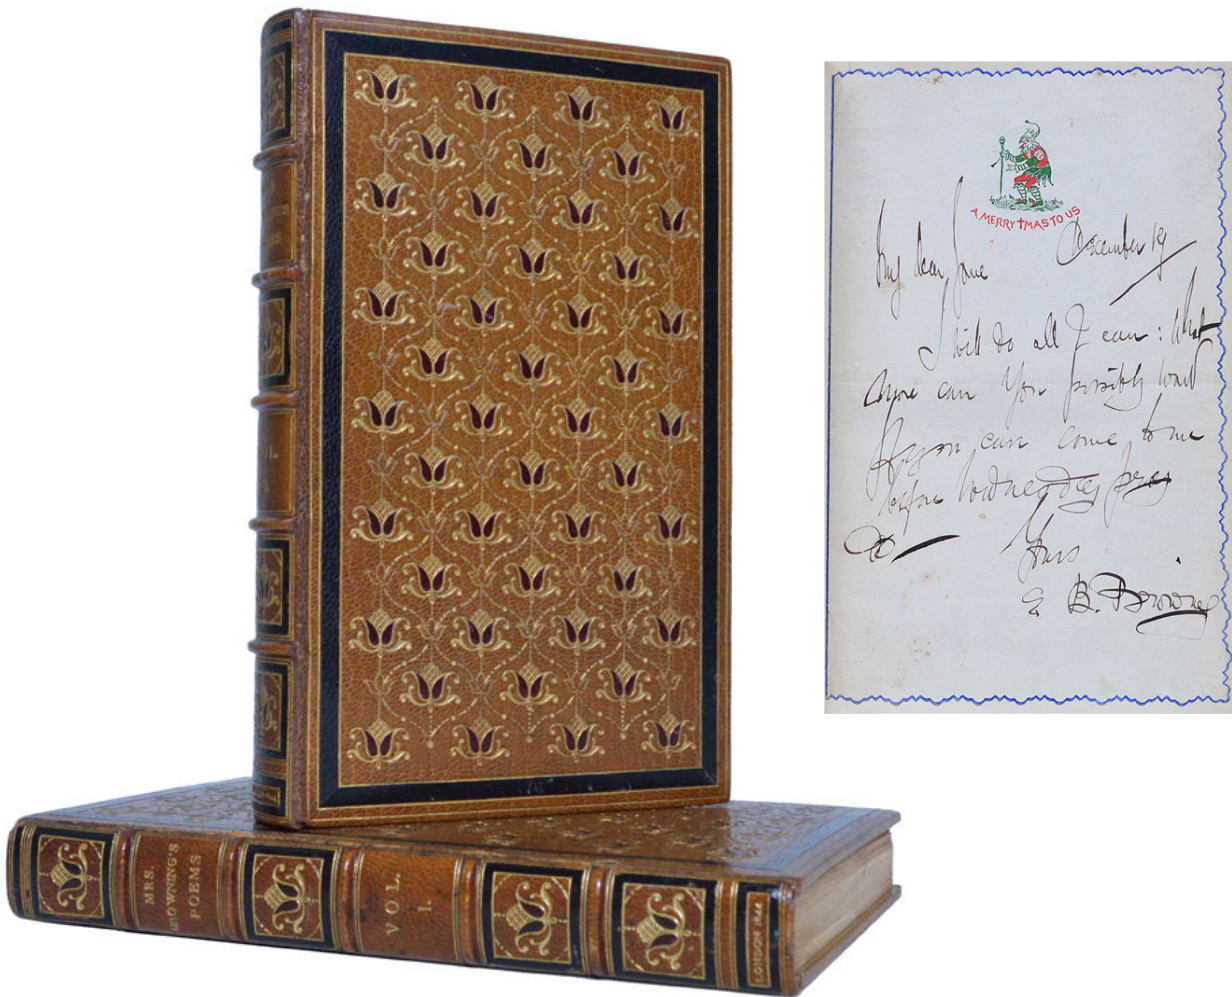 MRS.
BROWNING'S
POEMS
VOL.
1.
LONDON 1844
A MERRY XMAS TO US
December 19
My dear Jane
I will do all I can: What
more can you possibly want
can come to me
before Wednesday
Yours
E B. Browning